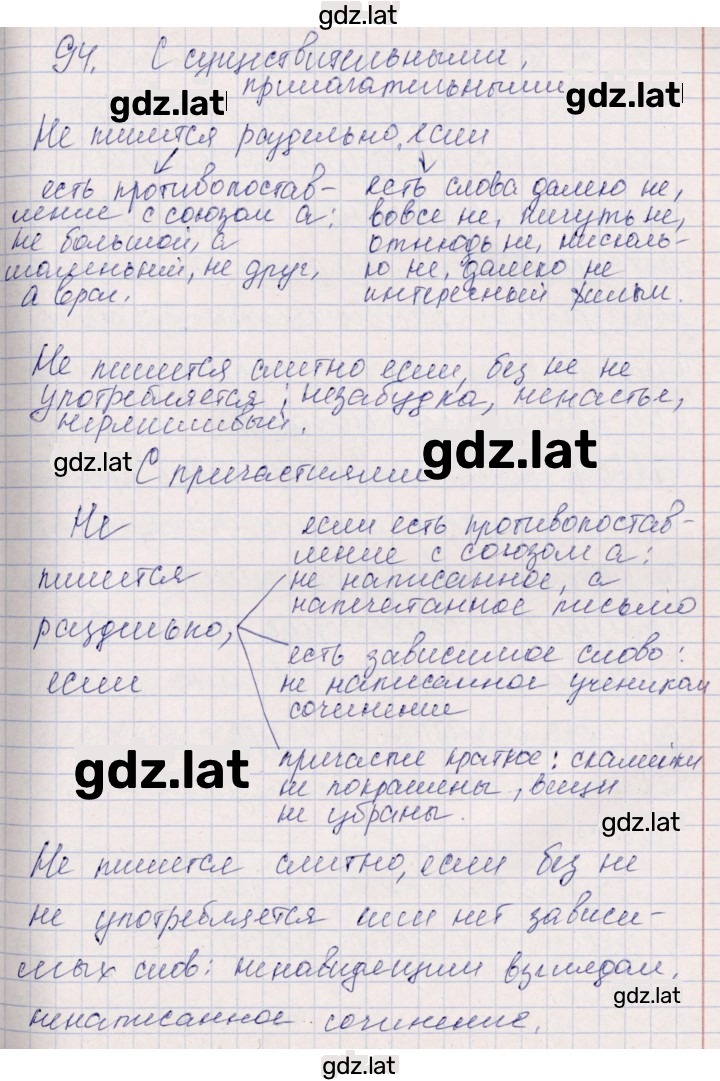 gdz.lat
94. С существительными,
прилагательными
gdz.lat
gdz.lat
Не пишется раздельно, если
есть противопостав-
ление с союзом а:
не большой, а
маленький, не друг,
а враг.
есть слова далеко не,
вовсе не, ничуть не,
отнюдь не, нисколь-
ко не, далеко не
интересный фильм.
Не пишется слитно если, без не не
употребляется: незабудка, ненастье,
неряшливый.
gdz.lat
gdz.lat
С причастиями
Не
пишется
раздельно,
если
если есть противопостав-
ление с союзом а:
не написанное, а
напечатанное письмо
есть зависимое слово:
не написанное учеником
сочинение
причастие краткое: скамейки
не покрашены, вещи
не убраны.
gdz.lat
gdz.lat
Не пишется слитно, если без не
не употребляется или нет зависи-
мых слов: ненавидящим взглядом,
ненаписанное сочинение.
gdz.lat
gdz.lat